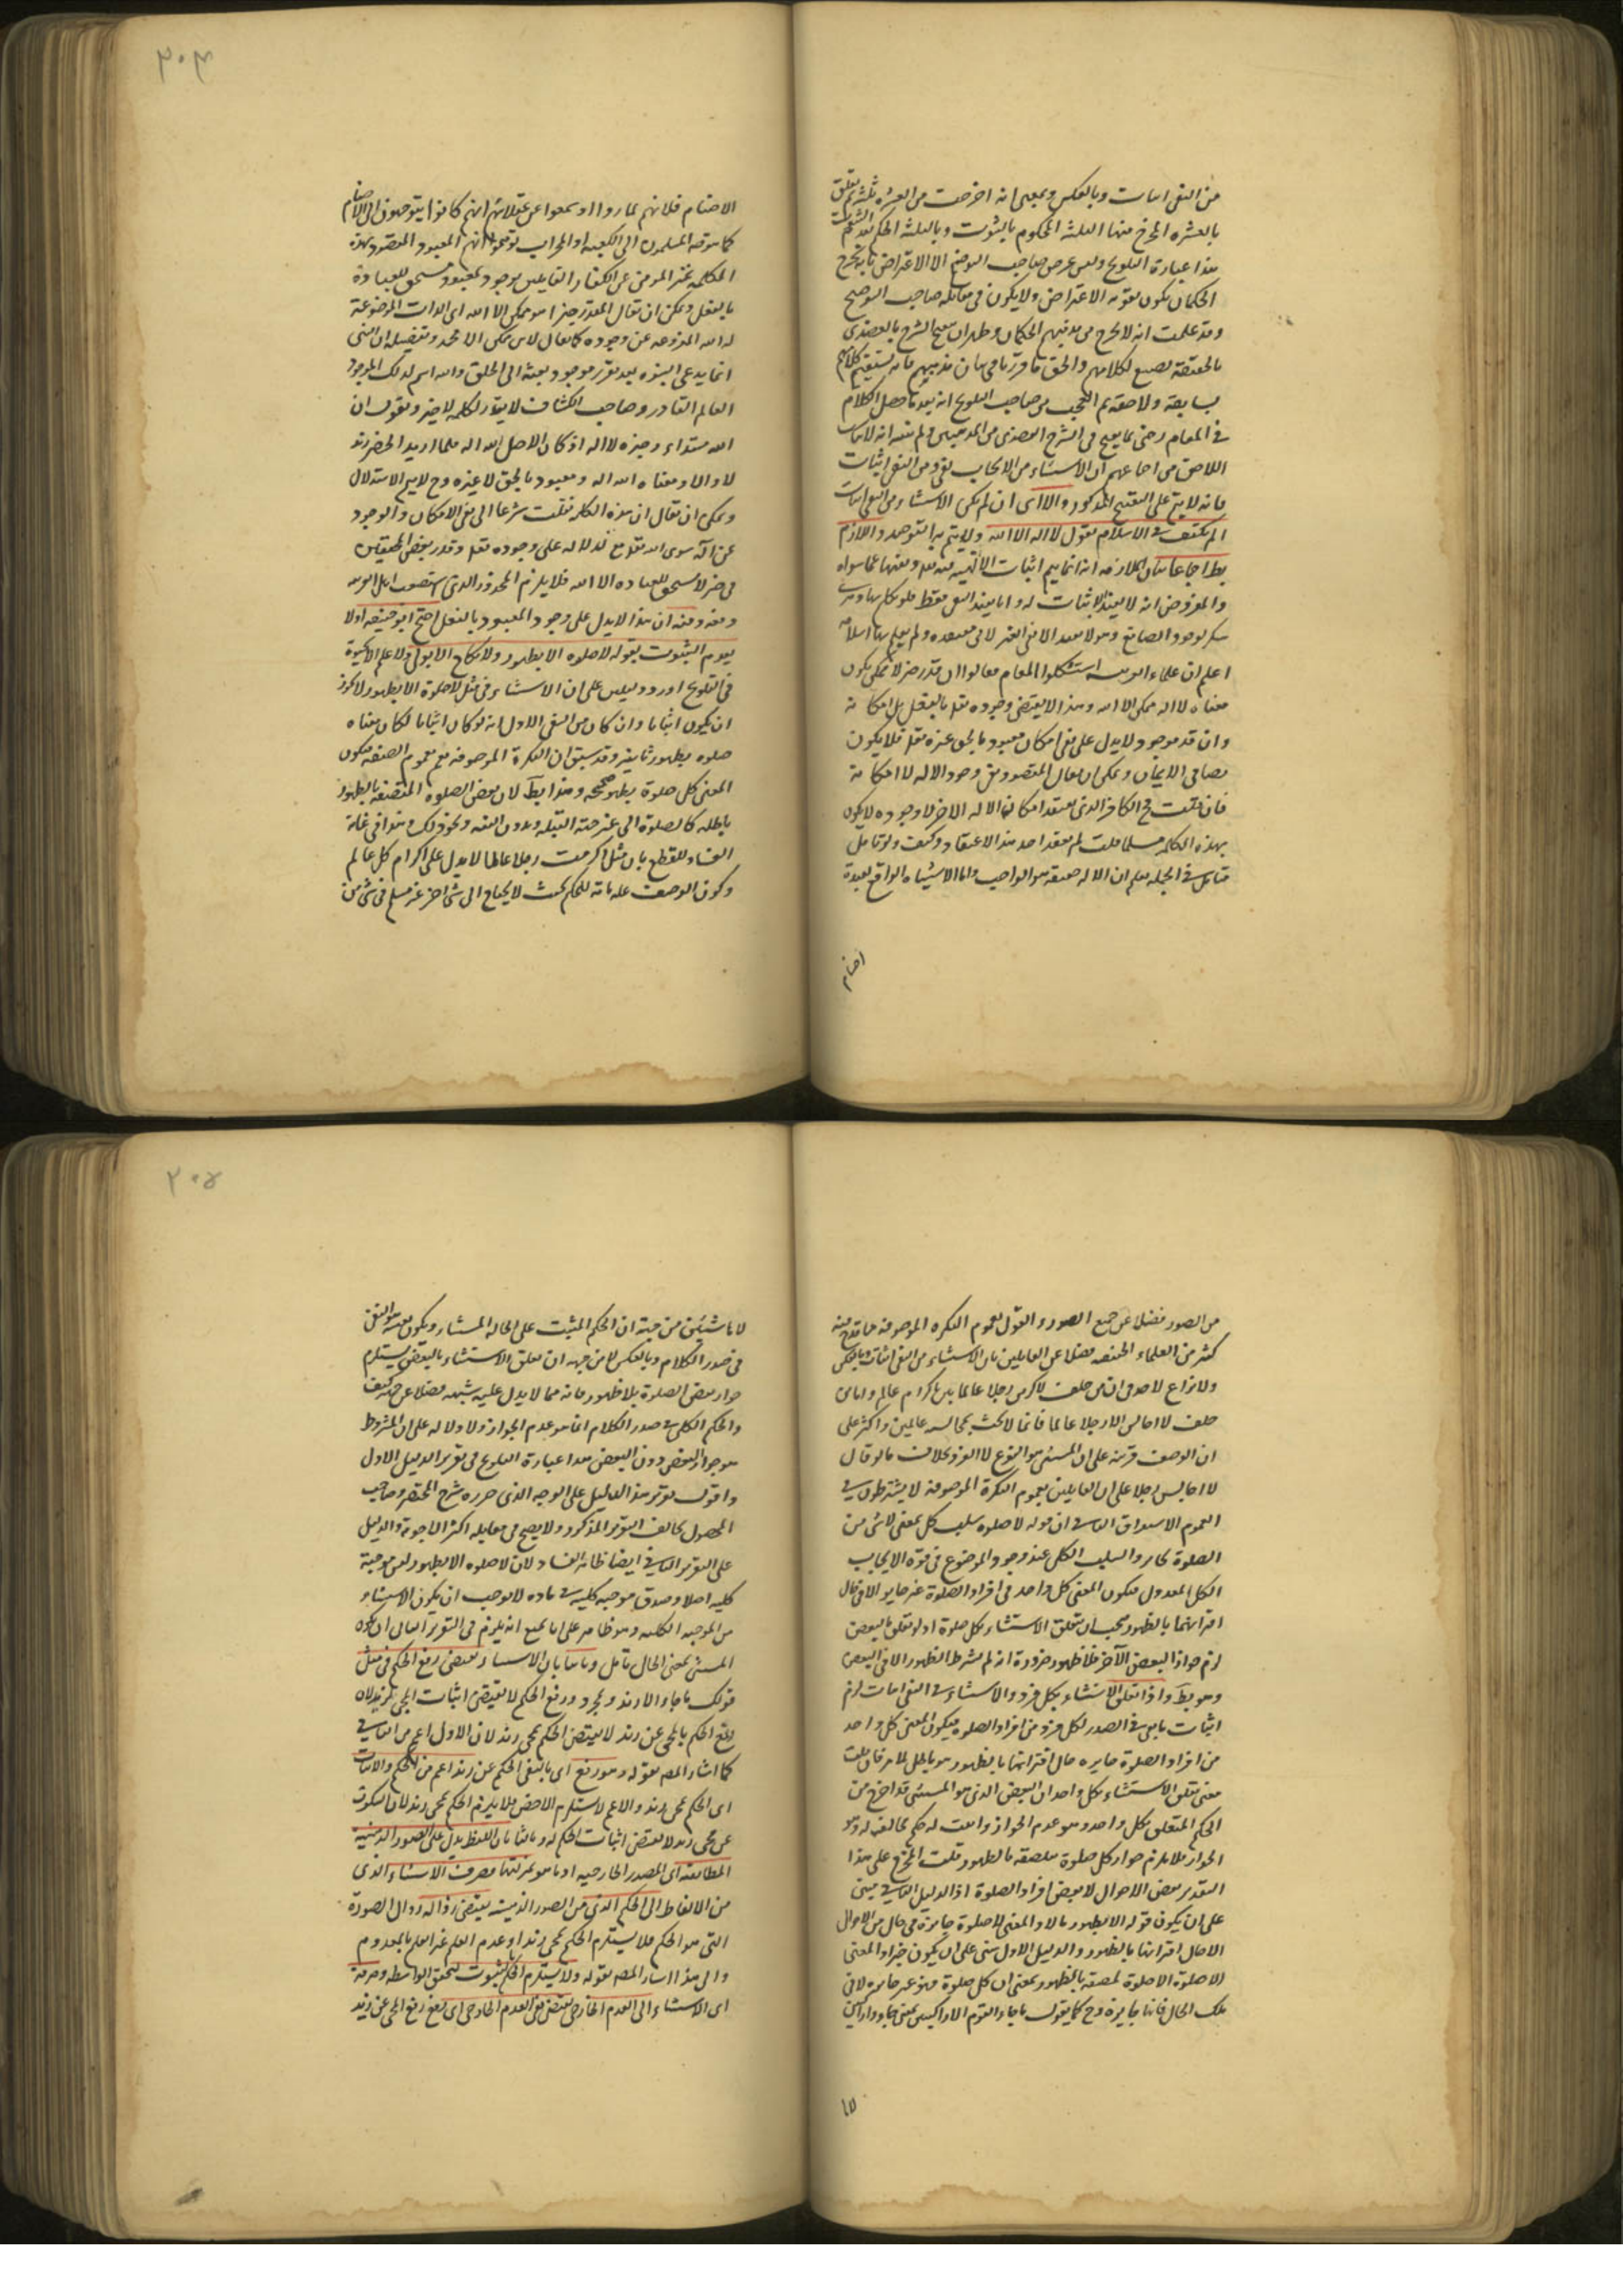 من النفى اثبات وبالعكس وبمعنى انه اخرجت من العشرة ثلثة ثم تعلق
بالعشرة المخرج منها الثلثة الحكم بالثبوت وبالثلثة الحكم بعدم الثبوت
هذا عبارة التلويح وليس غرض صاحب التوضيح الا الاعتراض بانه يخرج
الحكمان يكون بقوته الاعتراض ولا يكون فى مقابلة صاحب التوضيح
وقد علمت انه لا يخرج من مذهبهم الحكمان
بالحقيقة لكلامهم والحق ما قررنا فى بيان مذهبهم فانه يستقيم كلامهم
سابقه ولاحقه ثم العجب من صاحب التلويح انه بعد ما فصل الكلام
فى المقام
اجماعهم ان الاستثناء من الايجاب نفى ومن النفى اثبات
فانه لا يتم على المذكور والا اى ان لم يكن الاستثناء من النفى اثبات
لم يكتف فى الاسلام بقول لا اله الا الله ولا يتم به التوحيد واللازم
بط اجماعا بيان الملازمة انه انما يتم اثبات الالهية لله تعالى ونفيها عما سواه
والمفروض انه لا يفيد الاثبات له وانما يفيد النفى فقط فلو تكلم بها دهرى
منكر لوجود الصانع
اعلم ان علماء العربية استشكلوا المقام فقالوا ان قدر خبر لا ممكن يكون
معناه لا اله ممكن الا الله وهذا لا يقتضى وجوده تعالى بالفعل بل امكانه
وان قدر موجود لا يدل على نفى امكان معبود بالحق غيره تعالى فلا يكون
نصا فى الايمان ويمكن ان يقال المقصود نفى وجود الاله لا امكانه
فان قلت فح الكافر الذى يعتقد امكان الاله الاخر لا وجوده لا يكون
بهذه الكلمة مسلما قلت لم يعتقد احد هذا الاعتقاد وكيف ولو تامل
متامل فى الجملة يعلم ان الاله حقيقة هو الواجب واما الاشتباه الواقع لعبدة
اصنام
٢٠٣
الاصنام فلانهم لما رووا او سمعوا عن عقلائهم انهم كانوا يتوجهون الى الاصنام
كما يتوجه المسلمون الى الكعبة او المحراب توهموا انهم المعبود المقصود بهذه
الكلمة تميز المؤمن عن الكفار القائلين بوجود معبود مستحق للعبادة
بالفعل ويمكن ان يقال المقدر خبرا هو ممكن الا الله اى الذات الموضوعة
انما يدعى النبوة بعد تقرر موجود بعثه الى الخلق والله اسم لذلك الموجود
العالم القادر وصاحب الكشاف لا يقدر لكلمة لا خبرا ويقول ان
الله مبتداء وخبره لا اله اذ كان الاصل الله اله فلما اريد الحصر زيد
لا والا ومعناه الله اله ومعبود بالحق لا غيره وح لا يتم الاستدلال
ويمكن ان يقال ان هذه الكلمة نقلت شرعا الى نفى الامكان والوجود
عن اله سوى الله تعالى مع الدلالة على وجوده تعالى وقدر بعض المحققين
فى خبر لا مستحق للعبادة الا الله فلا يلزم المحذور الذى
وفيه ان هذا لا يدل على وجود المعبود بالفعل احتج ابو حنيفة اولا
بعدم الثبوت بقوله لا صلوة الا بطهور ولا نكاح الا بولى ولا علم الا بحيوة
فى التلويح اورد دليلين على ان الاستثناء فى مثل لا صلوة الا بطهور لا يجوز
ان يكون اثباتا وان كان من النفى الاول انه لو كان اثباتا لكان معناه
صلوة بطهور ثابتة وقد سبق ان النكرة الموصوفة تعم بعموم الصفة فيكون
المعنى كل صلوة بطهور صحيحة وهذا بط لان بعض الصلوة المتصفة بالطهور
باطلة كالصلوة الى غير جهة القبلة وبدون النية ونحو ذلك وهذا فى غاية
الفساد للقطع بان مثل اكرمت رجلا عالما لا يدل على اكرام كل عالم
وكون الوصف علة تامة للحكم بحيث لا يحتاج الى شئ اخر غير مسلم فى شئ من
من الصور فضلا عن جميع الصور والقول بعموم النكرة الموصوفة مما قدح فيه
كثير من العلماء الحنفية فضلا عن القائلين بان الاستثناء من النفى اثبات وبالعكس
ولا نزاع لاحد فى ان من حلف لاكرمن رجلا عالما يبر باكرام عالم واما من
حلف لا اجالس الا رجلا عالما فانما لا يحنث بمجالسة عالمين واكثر على
ان الوصف قرينة على ان المستثنى هو النوع لا الفرد بخلاف ما لو قال
لا اجالس رجلا على ان القائلين بعموم النكرة الموصوفة لا يشترطون فى
العموم الاستغراق الثانى ان قوله لا صلوة سلب كلى بمعنى لا شئ من
الصلوة بجائز والسلب الكلى عند وجود الموضوع فى قوة الايجاب
الكلى المعدول فيكون المعنى كل واحد من افراد الصلوة غير جائز الا فى حال
اقترانها بالطهور فيجب ان يتعلق الاستثناء بكل صلوة اذ لو تعلق بالبعض
لزم جواز البعض الآخر بلا طهور ضرورة انه لم يشترط الطهور الا فى البعض
وهو بط واذا تعلق الاستثناء بكل فرد والاستثناء من النفى اثبات لزم
اثبات ما نفى فى الصدر لكل فرد من افراد الصلوة فيكون المعنى كل واحد
من افراد الصلوة جائزة حال اقترانها بالطهور وهو باطل لما مر فان قلت
معنى تعلق الاستثناء بكل واحد ان البعض الذى هو المستثنى قد اخرج من
الحكم المتعلق بكل واحد وهو عدم الجواز واثبت له حكم مخالف له وهو
الجواز فلا يلزم جواز كل صلوة ملصقة بالطهور قلت المخرج على هذا
التقدير بعض الاحوال لا بعض افراد الصلوة اذ الدليل الثانى مبنى
على ان يكون قوله الا بطهور حالا والمعنى لا صلوة جائزة فى حال من الاحوال
الا حال اقترانها بالطهور والدليل الاول مبنى على ان يكون خبرا والمعنى
لا صلوة الا صلوة ملصقة بالطهور بمعنى ان كل صلوة فهو غير جائزة الا فى
تلك الحال فانها جائزة وح كما يقول ما جاء القوم الا راكبين بمعنى جاؤا راكبين
لا ما
٢٠٤
لا ماشيين من جهة ان الحكم المثبت على الحالة المستثناة ويكون
فى صدر الكلام وبالعكس لا من جهة ان تعلق الاستثناء بالبعض يستلزم
جواز بعض الصلوة بلا طهور فانه مما لا يدل عليه شبهة فضلا عن حجة كيف
والحكم الكلى فى صدر الكلام انما هو عدم الجواز ولا دلالة على ان المشروط
هو جواز البعض دون البعض هذا عبارة التلويح فى تقرير الدليل الاول
واقول تقرير هذا الدليل على الوجه الذى حرره شرح المختصر وصاحب
المحصول يخالف التقرير المذكور ولا يصح فى مقابله اكثر الاجوبة والدليل
على التقرير الثانى ايضا ظاهر الفساد لان لا صلوة الا بطهور ليس موجبة
كلية اصلا وصدق موجبة كلية فى مادة لا يوجب ان يكون الاستثناء
من الموجبة الكلية وهو ظاهر على انا نمنع انه يلزم فى التقرير الثانى ان يكون
المستثنى بمعنى الحال تأمل وثانيا بان الاستثناء يقتضى رفع الحكم فى مثل
قولك ما جاء الا زيد ومجرد رفع الحكم لا يقتضى اثبات المجئ لزيد لان
رفع الحكم بالمجئ عن زيد لا يقتضى الحكم بمجئ زيد لان الاول اعم من الثانى
كما اشار المص بقوله وهو رفع اى بالنفى الحكم عن زيد اعم من الحكم والاثبات
اى الحكم بمجئ زيد والاعم لا يستلزم الاخص فلا يلزم الحكم بمجئ زيد لان السكوت
عن مجئ زيد لا يقتضى اثبات الحكم له وثالثا بان اللفظ يدل على الصور الذهنية
المطابقة اى المصدر الخارجية او ما هو بمنزلتها وصرف الاستثناء الذى
من الالفاظ الى الحكم الذى من الصور الذهنية يقتضى زواله زوال الصورة
التى هو الحكم فلا يستلزم الحكم بمجئ زيد او عدم العلم غير العلم بالعدم
والى هذا اشار المص بقوله ولا يستلزم الحكم بالثبوت لتحقق الواسطة وصرفه
اى الاستثناء الى العدم الخارجى يقتضى نفى العدم الخارجى اى رفع رفع المجئ عن زيد